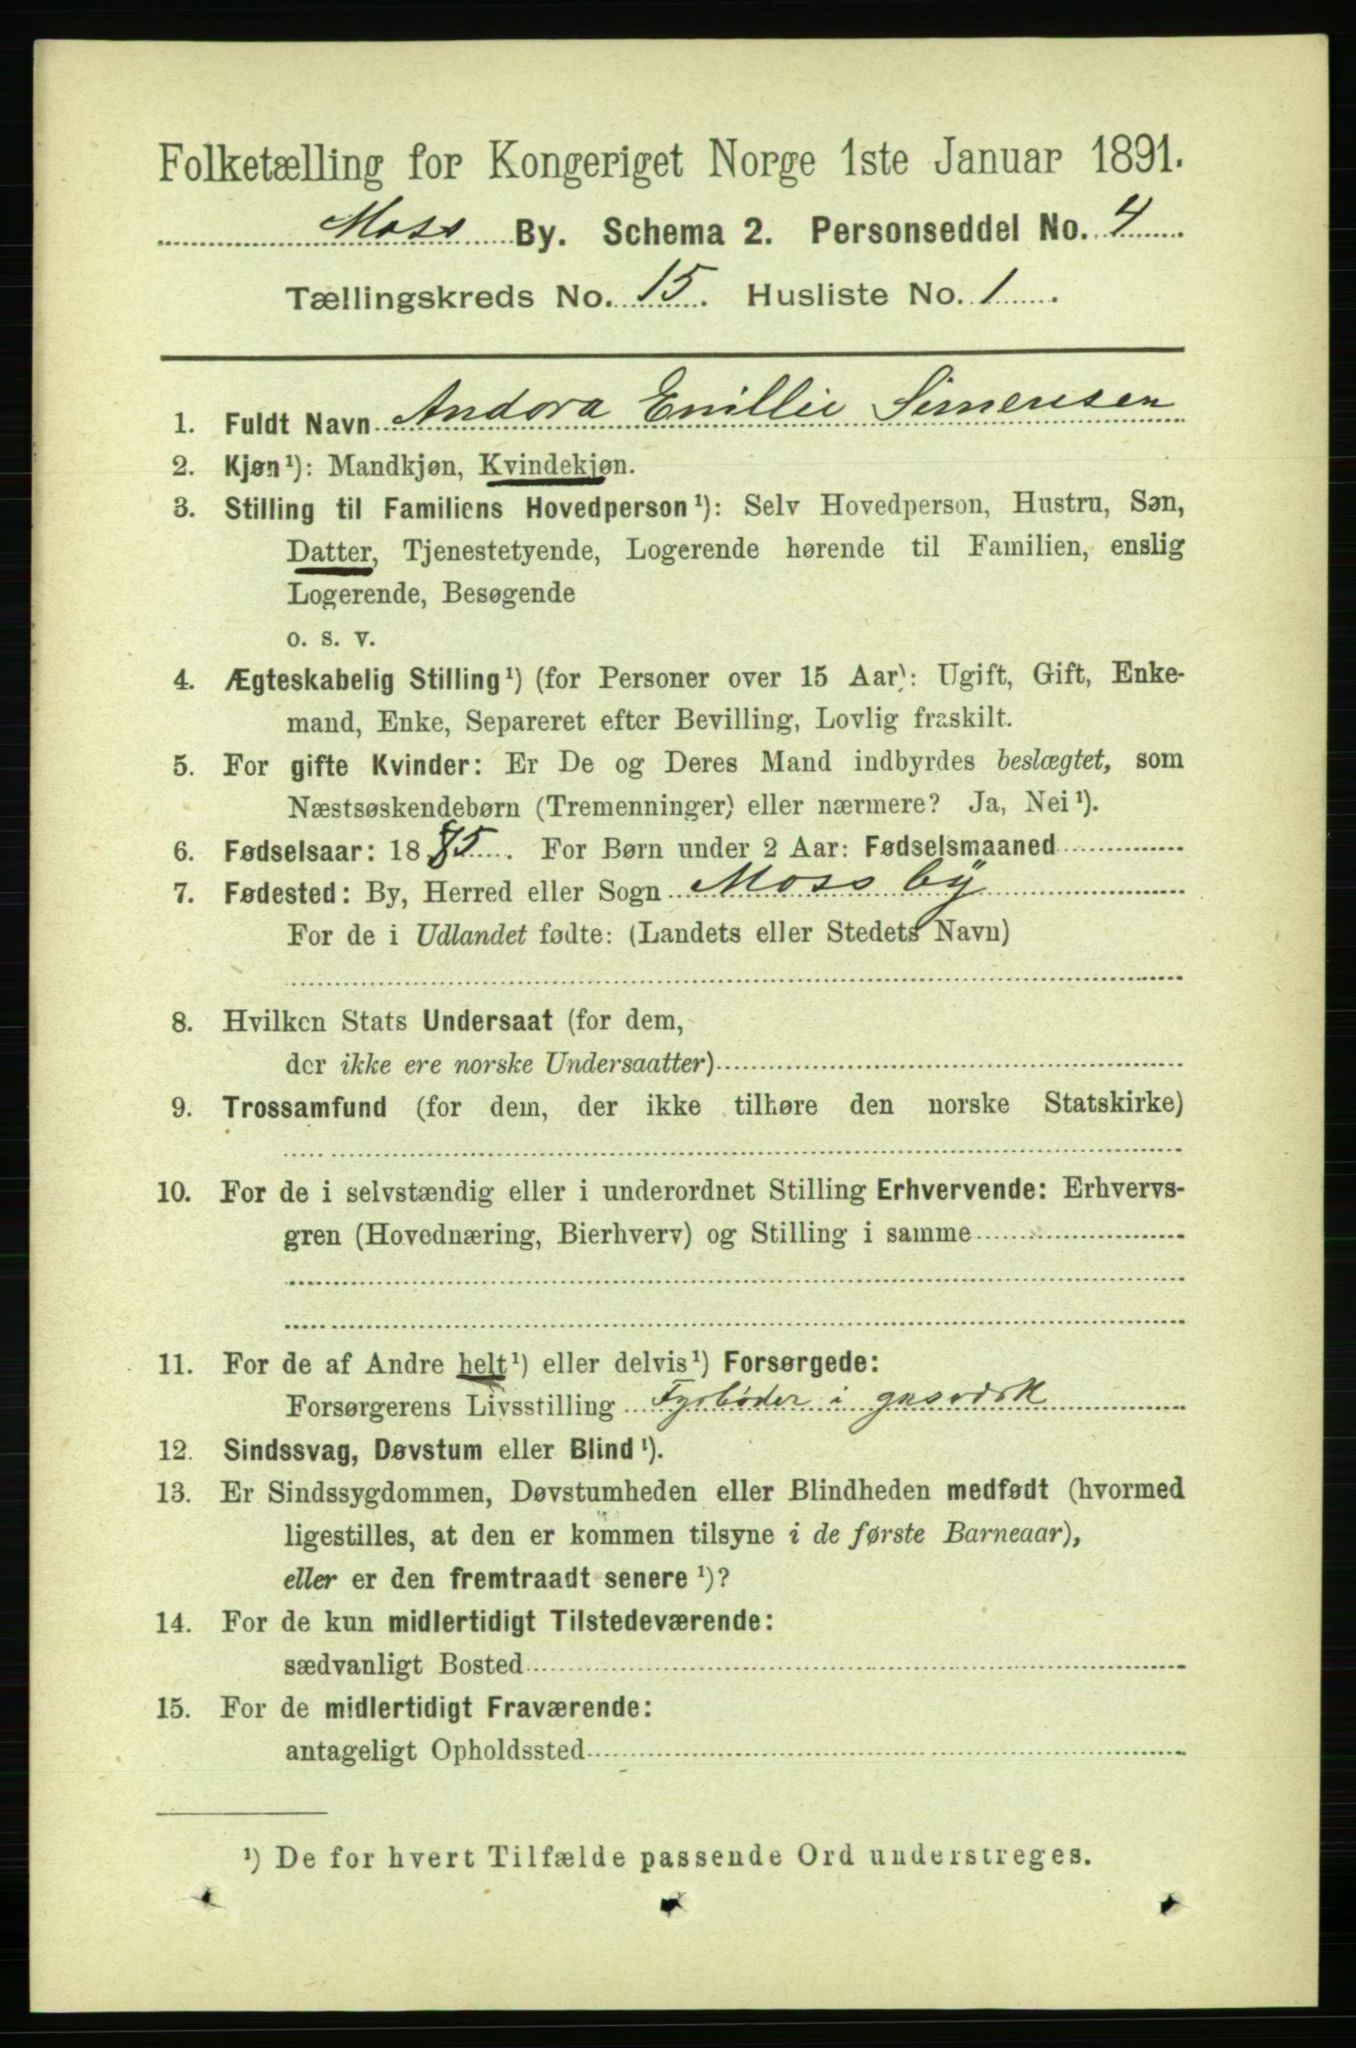 Folketælling for Kongeriget Norge 1ste Januar 1891.
Moss By. Schema 2. Personseddel No. 4
Tællingskreds No. 15. Husliste No. 1.
1. Fuldt Navn Andora Emillie Simensen
2. Kjøn¹): Mandkjøn, Kvindekjøn.
3. Stilling til Familiens Hovedperson¹): Selv Hovedperson, Hustru, Søn,
Datter, Tjenestetyende, Logerende hørende til Familien, enslig
Logerende, Besøgende
o. s. v.
4. Ægteskabelig Stilling¹) (for Personer over 15 Aar): Ugift, Gift, Enke-
mand, Enke, Separeret efter Bevilling, Lovlig fraskilt.
5. For gifte Kvinder: Er De og Deres Mand indbyrdes beslægtet, som
Næstsøskendebørn (Tremenninger) eller nærmere? Ja, Nei¹).
6. Fødselsaar: 1885. For Børn under 2 Aar: Fødselsmaaned
7. Fødested: By, Herred eller Sogn Moss by
For de i Udlandet fødte: (Landets eller Stedets Navn)
8. Hvilken Stats Undersaat (for dem,
der ikke ere norske Undersaatter)
9. Trossamfund (for dem, der ikke tilhøre den norske Statskirke)
10. For de i selvstændig eller i underordnet Stilling Erhvervende: Erhvervs-
gren (Hovednæring, Bierhverv) og Stilling i samme
11. For de af Andre helt¹) eller delvis¹) Forsørgede:
Forsørgerens Livsstilling Fyrbøder i gasværk
12. Sindssvag, Døvstum eller Blind¹).
13. Er Sindssygdommen, Døvstumheden eller Blindheden medfødt (hvormed
ligestilles, at den er kommen tilsyne i de første Barneaar),
eller er den fremtraadt senere¹)?
14. For de kun midlertidigt Tilstedeværende:
sædvanligt Bosted
15. For de midlertidigt Fraværende:
antageligt Opholdssted
¹) De for hvert Tilfælde passende Ord understreges.